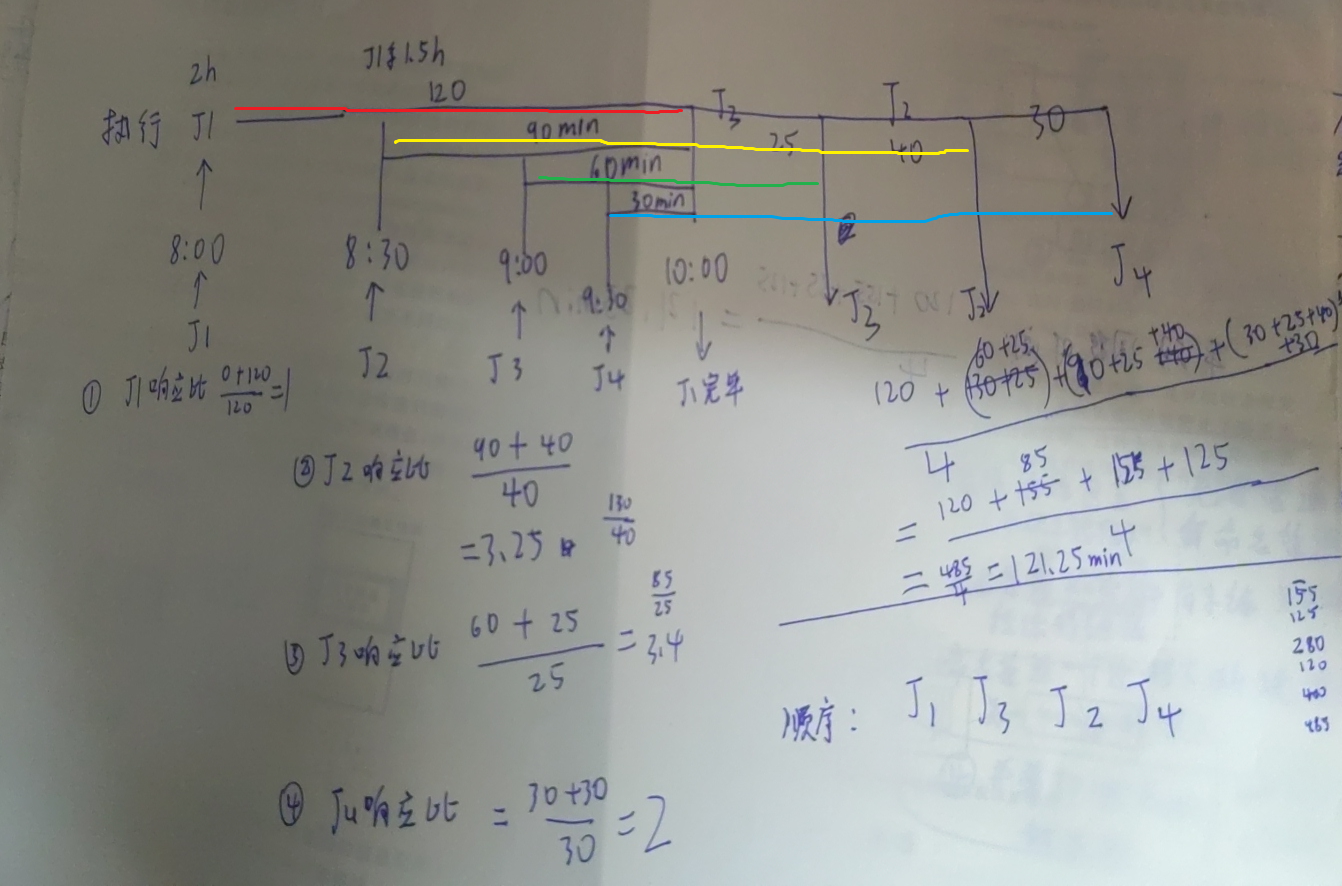 2h
J1 1.5h
120
执行 J1
J3
J2
30
90min
25
40
60min
30min
8:00
8:30
9:00
9:30
10:00
J4
J1
J2
J3
J4
J1完毕
J3
J2
① J1响应比 0+120/120=1
②J2响应比 90+40/40
=3.25
130/40
③ J3响应比 60+25/25 = 3.4
85/25
④ J4响应比 = 30+30/30 = 2
120 + (60+25) + (90+25+40) + (30+25+40+30)
4
= 120 + 85 + 155 + 125
4
= 485/4 = 121.25min
155
125
280
120
400
485
顺序: J1 J3 J2 J4